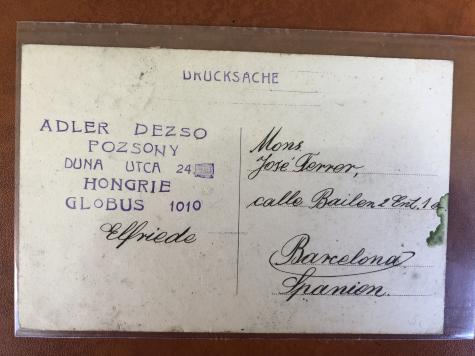 DRUCKSACHE
ADLER DEZSO
POZSONY
DUNA UTCA 24
HONGRIE
GLOBUS 1010
Elfriede
Mons.
José Ferrer,
calle Bailen 2 Ent. 1a
Barcelona
Spanien.